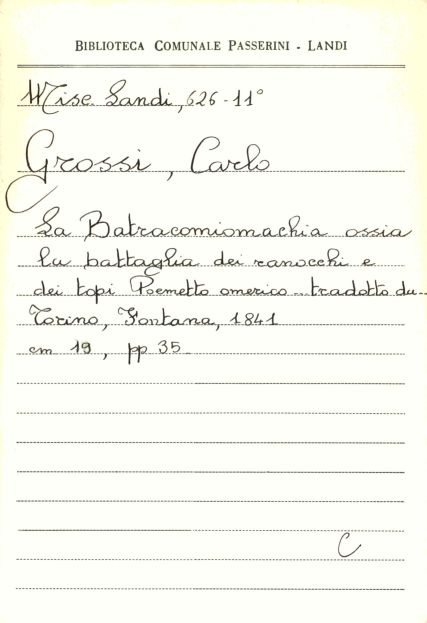 BIBLIOTECA COMUNALE PASSERINI - LANDI
Misc. Landi, 626-11°
Grossi, Carlo
La Batracomiomachia ossia
la battaglia dei ranocchi e
dei topi Poemetto omerico... tradotto da...
Torino, Fontana, 1841
cm 19, pp 35
C